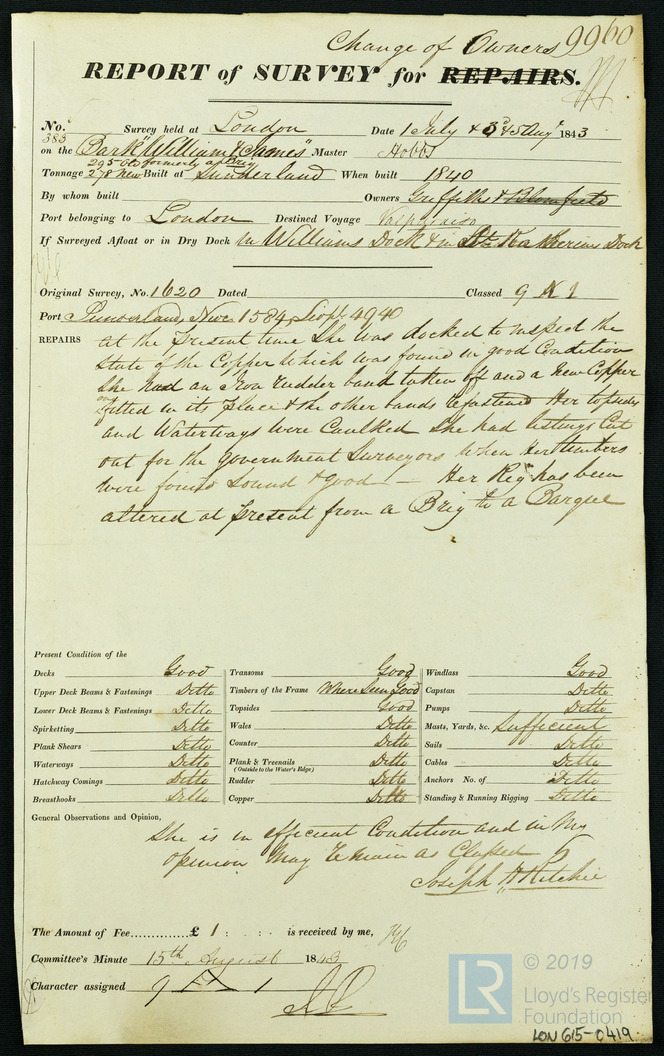 Change of Owners 9960
REPORT of SURVEY for REPAIRS.
No. 383 Survey held at London Date 1 July & 3d & 5 Augt 1843
on the Bark "William & James" Master Hobbs
295 Old formerly a Brig
Tonnage 278 New Built at Sunderland When built 1840
By whom built Owners Griffiths &
Port belonging to London Destined Voyage Valparaiso
If Surveyed Afloat or in Dry Dock in Williams Dock & in St Katherines Dock
Original Survey, No. 1620 Dated Classed 9 A 1
Port Sunderland, Nwc 1584, 4940
REPAIRS at the present time She was docked to inspect the
state of the Copper which was found in good Condition
She had an Iron rudder band taken off and a new Copper
one fitted in its place & the other bands refastened Her topsides
and Waterways were Caulked She had listings Cut
out for the Government Surveyors when Her timbers
were found Sound & good — Her Rig has been
altered at present from a Brig to a Barque
Present Condition of the
Decks Good
Upper Deck Beams & Fastenings Ditto
Lower Deck Beams & Fastenings Ditto
Spirketting Ditto
Plank Shears Ditto
Waterways Ditto
Hatchway Comings Ditto
Breasthooks Ditto
Transoms Good
Timbers of the Frame Where Seen Good
Topsides Good
Wales Ditto
Counter Ditto
Plank & Treenails Ditto
(Outside to the Water's Edge)
Rudder Ditto
Copper Ditto
Windlass Good
Capstan Ditto
Pumps Ditto
Masts, Yards, &c. Sufficient
Sails Ditto
Cables Ditto
Anchors No. of Ditto
Standing & Running Rigging Ditto
General Observations and Opinion,
She is in efficient Condition and in My
opinion May remain as Classed
Joseph H Ritchie
The Amount of Fee.............£ 1 : . : . is received by me, JHR
Committee's Minute 15th August 1843
Character assigned 9 A 1
LR © 2019
Lloyd's Register
Foundation
LON 615-0419